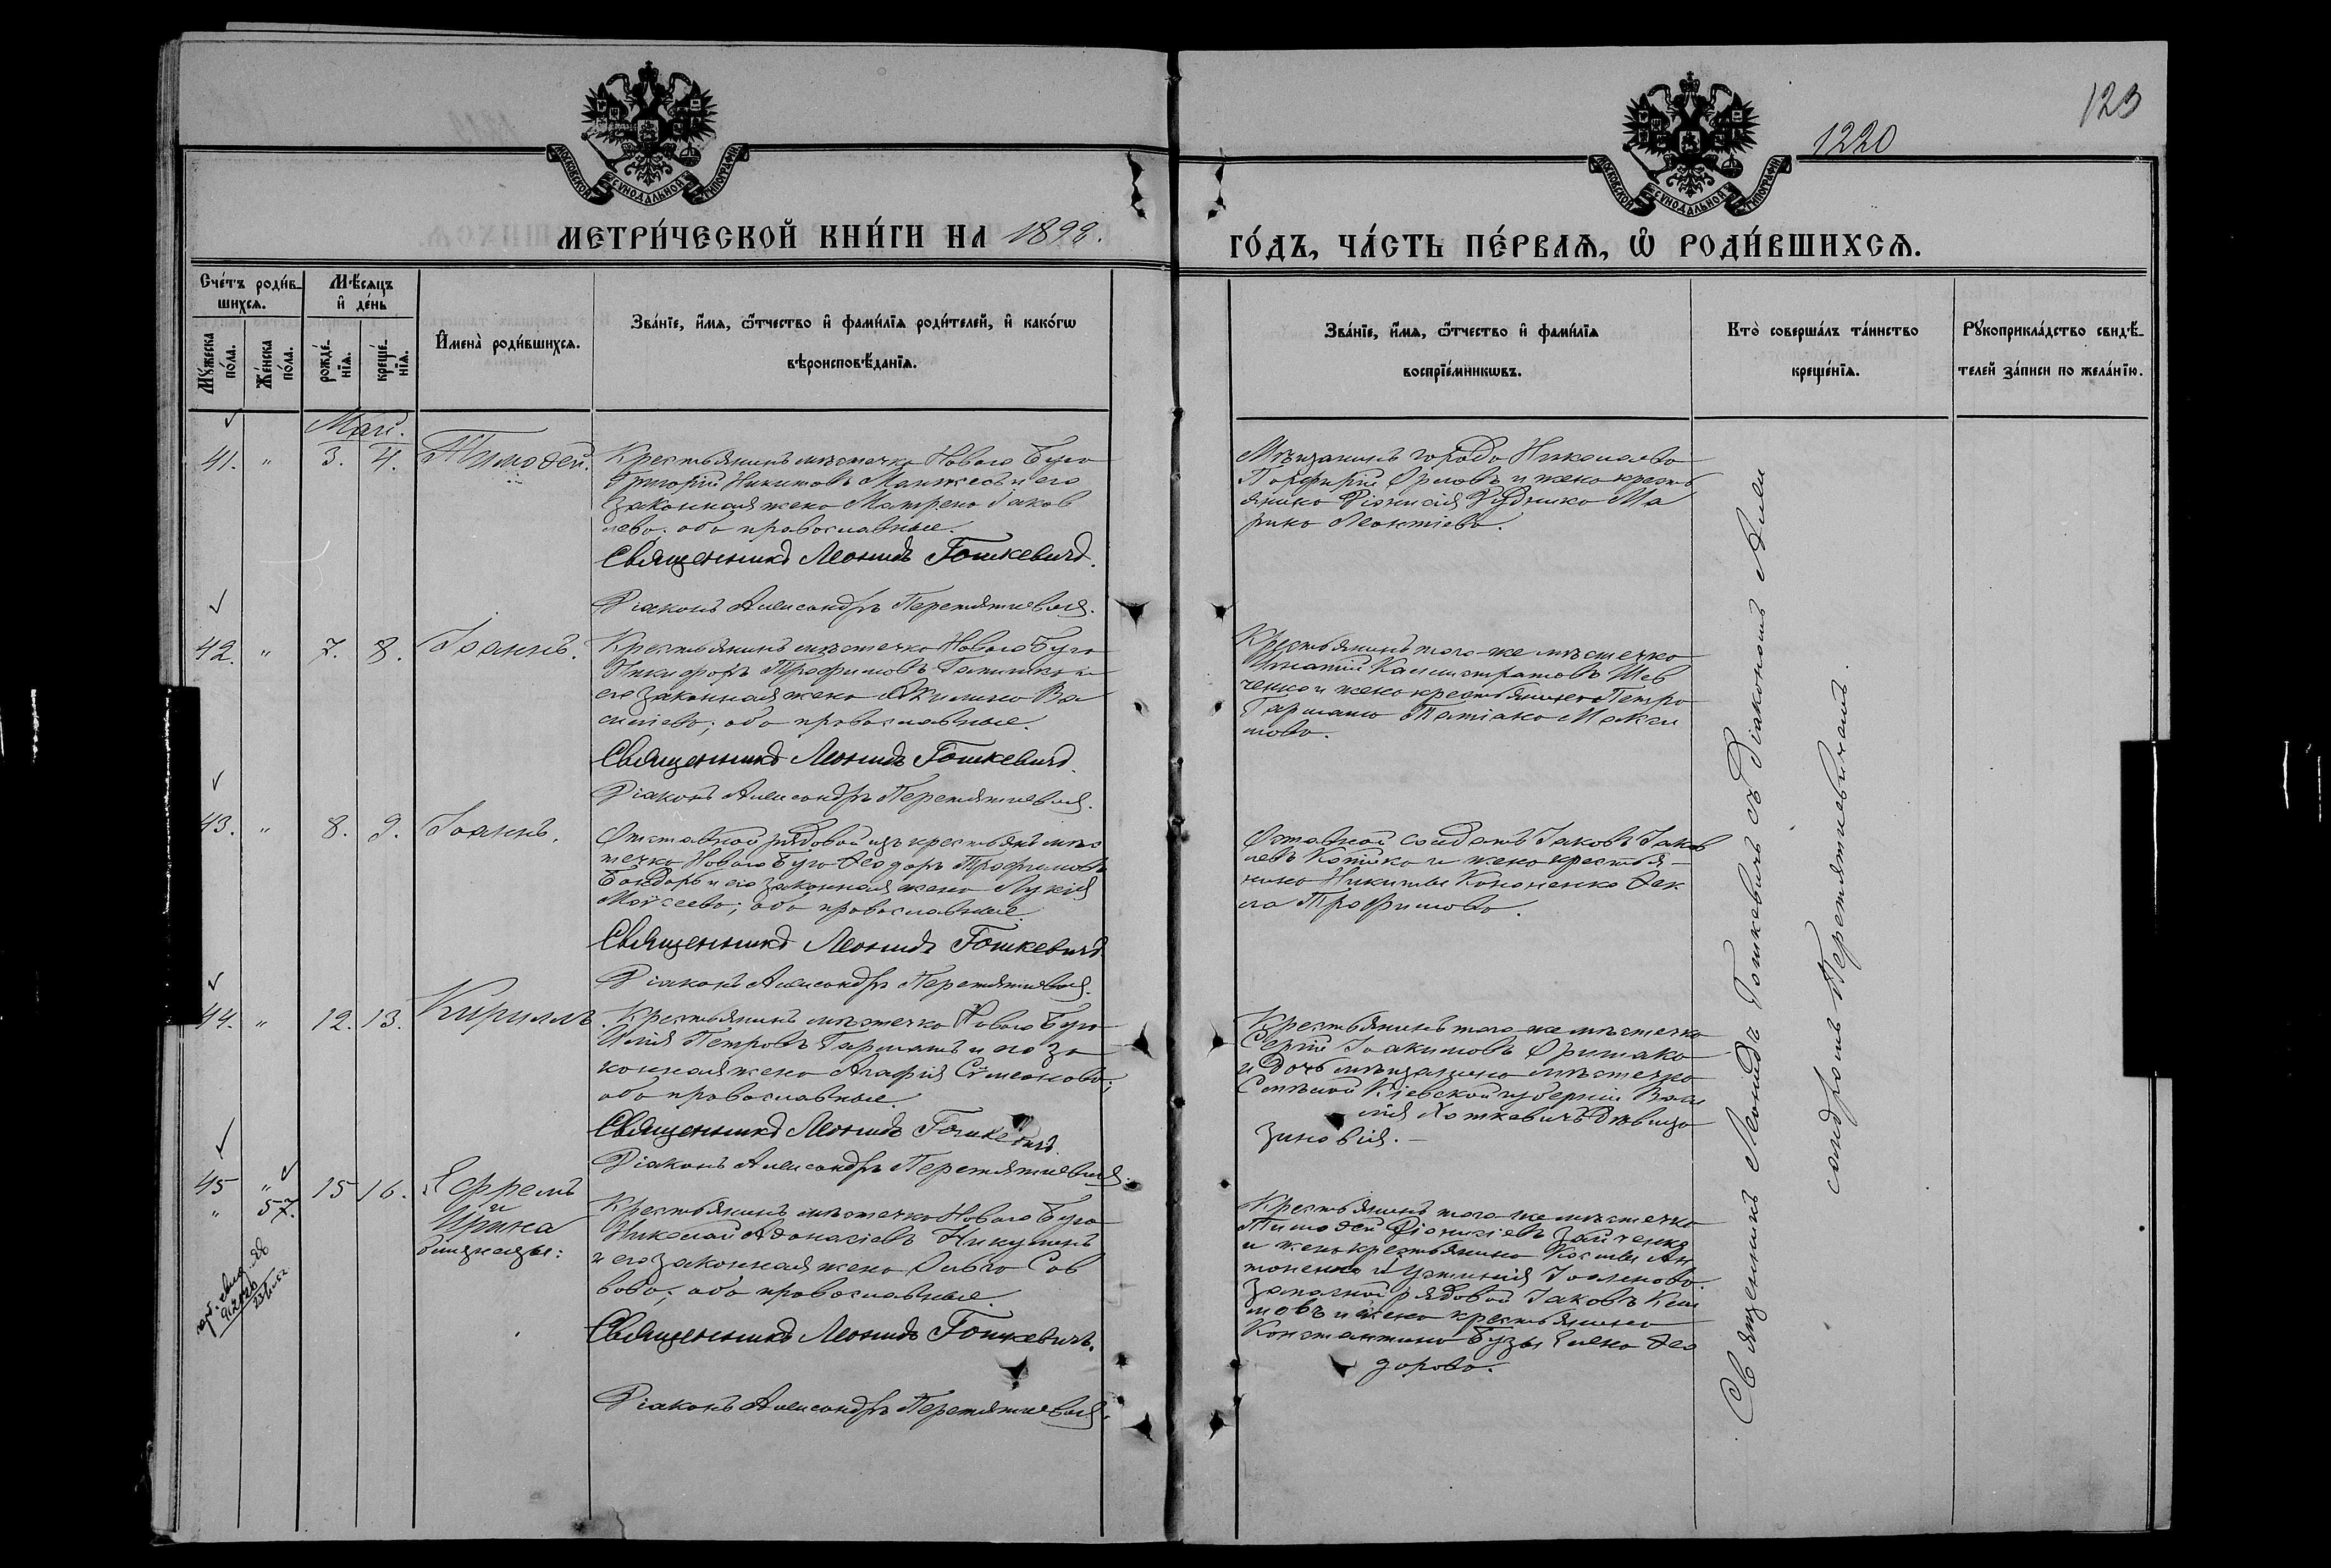 123
1220
МОСКОВСКОЙ СѴНОДАЛЬНОЙ ТИПОГРАФІИ
МОСКОВСКОЙ СѴНОДАЛЬНОЙ ТИПОГРАФІИ
МЕТРИ́ЧЕСКОЙ КНИ́ГИ НА 1898.
ГО́ДЪ, ЧА́СТЬ ПЕ́РВАѦ, Ѿ РОДИ́ВШИХСѦ.
Сче́тъ роди́в-
шихсѧ.
Мꙋ́жеска по́ла.
Же́нска по́ла.
Мѣ́сѧцъ и де́нь
рожде́-нїѧ.
креще́-нїѧ.
И҆мена̀ роди́вшихсѧ.
Зва́нїе, и҆́мѧ, ѻ҆́тчество и҆ фами́лїѧ роди́телей, и҆ како́гѡ
вѣроисповѣ́данїѧ.
Зва́нїе, и҆́мѧ, ѻ҆́тчество и҆ фами́лїѧ
воспрїе́мникѡвъ.
Кто̀ соверша́лъ та́инство
креще́нїѧ.
Рꙋкоприкла́дство свидѣ́-
телей за́писи по жела́нїю.
Май.
41. " 3. 4. Тимоѳей.
Крестьянинъ мѣстечка Новаго Буга
Григорій Никитовъ и его
законная жена Матрена Іаков
лева, оба православные.
Священникъ Леонидъ Гошкевичъ.
Діаконъ Александръ Перетятковичъ.
Мѣщанинъ города Николаева
Порфирій Орловъ и жена кресть
янина Діонисія Рудника Ма
рина Леонтіева.
42. " 7. 8. Іоаннъ.
Крестьянинъ мѣстечка Новаго Буга
Никифоръ Трофимовъ и
его законная жена Акилина Ва
силіева, оба православные.
Священникъ Леонидъ Гошкевичъ.
Діаконъ Александръ Перетятковичъ.
Крестьянинъ того-же мѣстечка
Игнатій Каллистратовъ Шев
ченко и жена крестьянина Петра
Гармаша Татіана Макси
мова.
43. " 8. 9. Іоаннъ.
Отставной рядовой изъ крестьянъ мѣс
течка Новаго Буга Ѳеодоръ Трофимовъ
Бондарь и его законная жена Лукія
Моѵсеева, оба православные.
Священникъ Леонидъ Гошкевичъ
Діаконъ Александръ Перетятковичъ.
Отставной солдатъ Іаковъ Іаков
левъ и жена крестья-
нина Никиты Кононенка Ѳек
ла Трофимова.
44. " 12. 13. Кириллъ.
Крестьянинъ мѣстечка Новаго Буга
Илія Петровъ Гармашъ и его за
конная жена Агафія Сѵмеонова,
оба православные.
Священникъ Леонидъ Гошкевичъ.
Діаконъ Александръ Перетятковичъ.
Крестьянинъ того-же мѣстечка
Сергій Іоакимовъ
и дочь мѣщанина мѣстечка
Смѣлой Кіевской губерніи Васи
лія Хоткевича дѣвица
Зиновія.
45 " 57. 15 16. Ефремъ
и
Ирина
близнецы:
Крестьянинъ мѣстечка Новаго Буга
Николай Аѳанасіевъ Никулинъ
и его законная жена Ольга Сав
вова, оба православные.
Священникъ Леонидъ Гошкевичъ.
Діаконъ Александръ Перетятковичъ.
Крестьянинъ того-же мѣстечка
Тимоѳей Діонисіевъ Зайченко
и жена крестьянина Космы Ан
тоненка Іоаннова
запасной рядовой Іаковъ Кли
мовъ и жена крестьянина
Константина Бузы Елена Ѳео
дорова.
Священникъ Леонидъ Гошкевичъ съ Діакономъ Алек
сандромъ Перетятковичемъ.